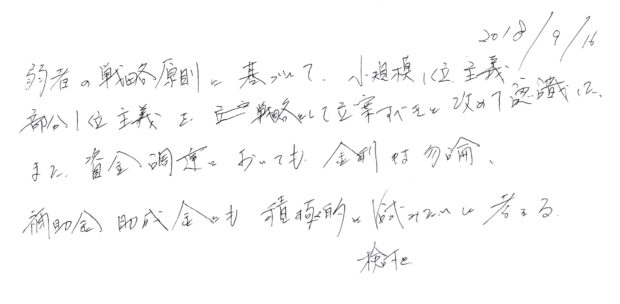 2018/9/16
弱者の戦略原則に基づいて、小規模1位主義
部分1位主義を戦略として立案すべきと改めて認識した。
また、資金調達においても金利は勿論、
補助金助成金も積極的に試みたいと考える。
検討